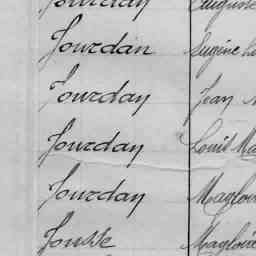 Jourday Auguste
Jourdan Eugène
Jourday Jean
Jourday Louis
Jourday Magloire
Jousse Magloire